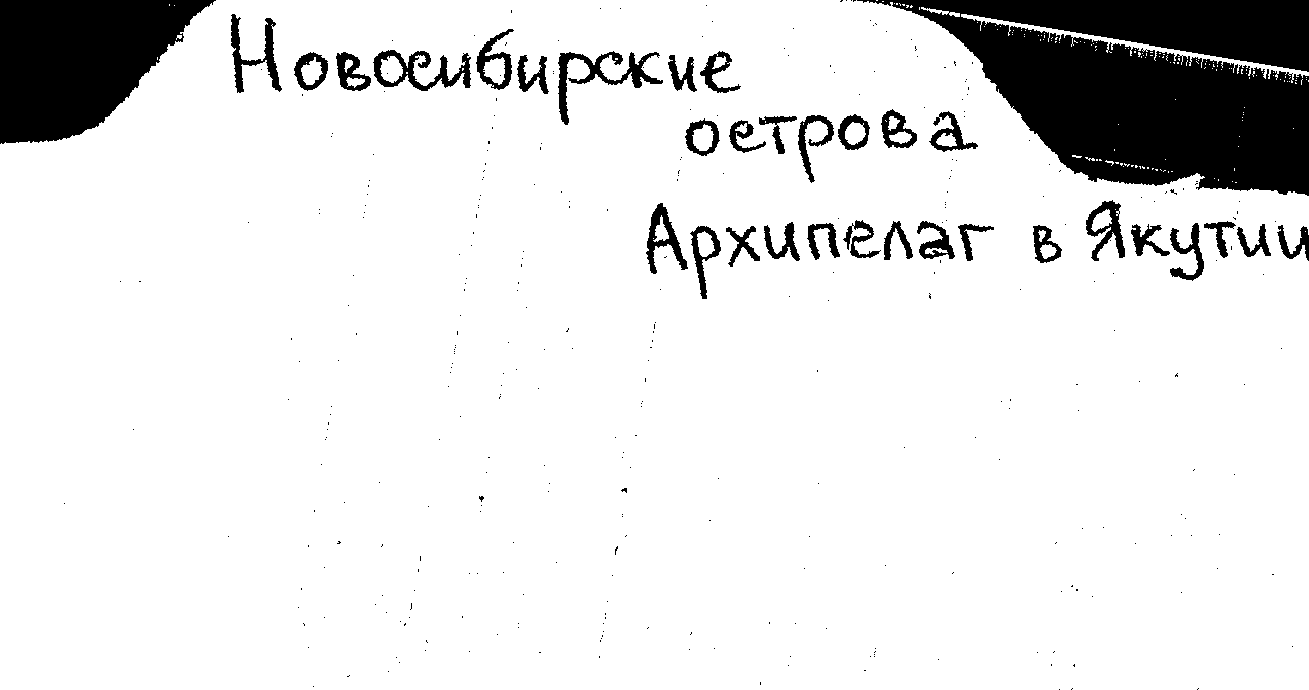 Новосибирские
острова
Архипелаг в Якутии